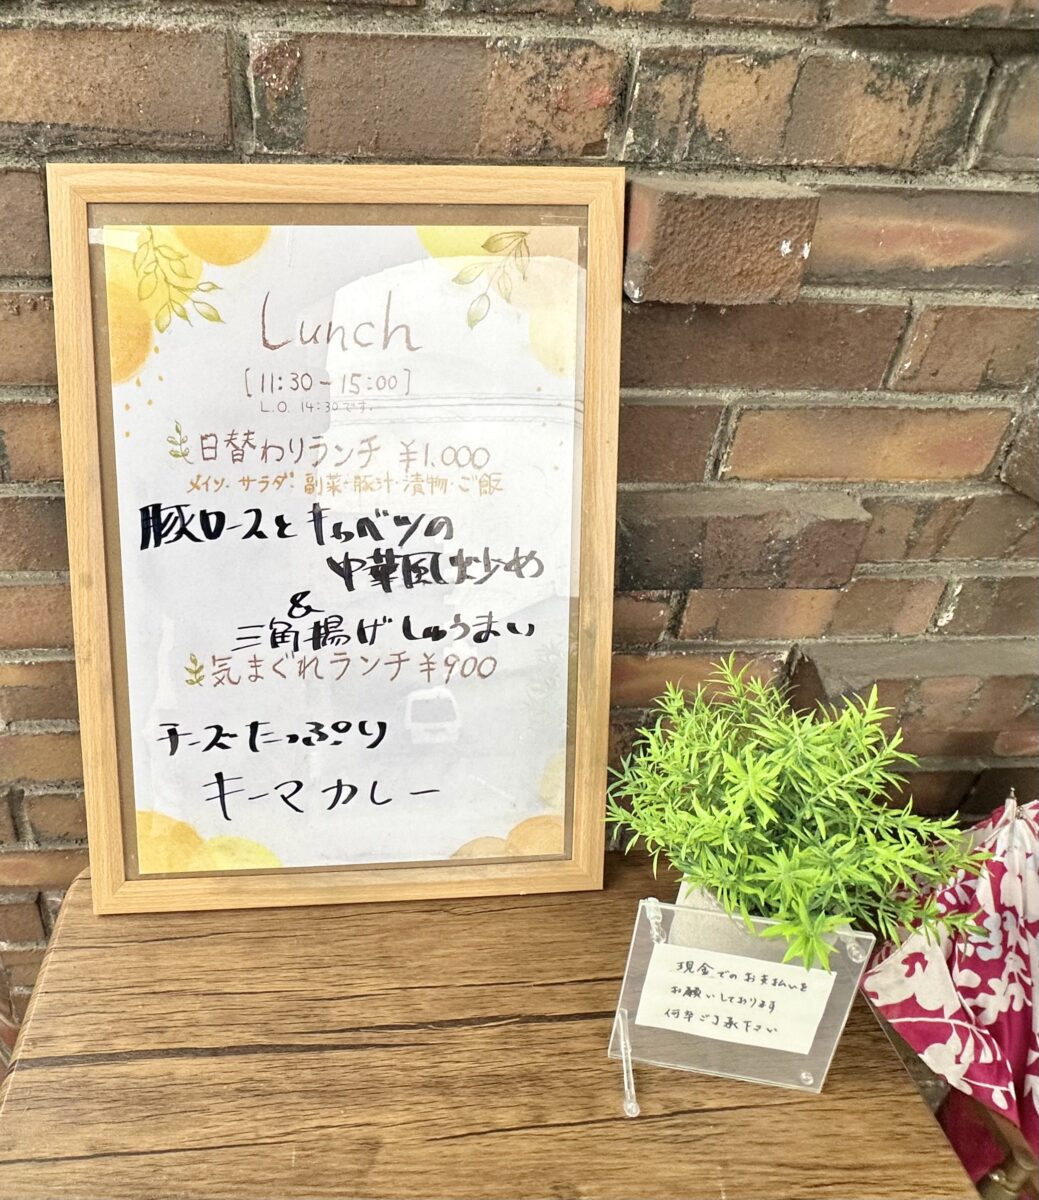 Lunch
[11:30-15:00]
L.O. 14:30です。
日替わりランチ ¥1,000
メイン・サラダ・副菜・豚汁・漬物・ご飯
豚ロースとキャベツの
中華風炒め
&
三角揚げしゅうまい
気まぐれランチ ¥900
チーズたっぷり
キーマカレー
現金でのお支払いを
お願いしております
何卒ご了承下さい